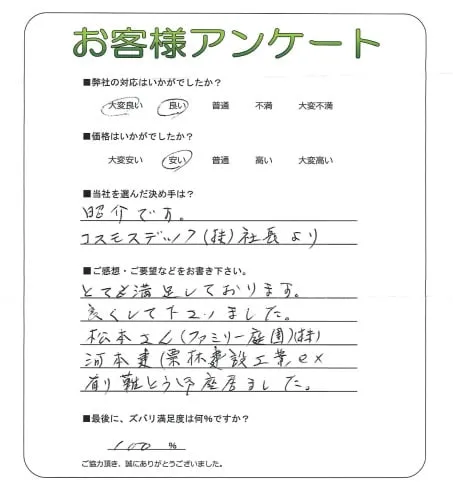 お客様アンケート
■弊社の対応はいかがでしたか？
大変良い 良い 普通 不満 大変不満
■価格はいかがでしたか？
大変安い 安い 普通 高い 大変高い
■当社を選んだ決め手は？
昭介です。
コスモスデック(株)社長より
■ご感想・ご要望などをお書き下さい。
とても満足しております。
良くして下さいました。
松本さん(ファミリー庭園)(株)
河本建(栗林建設工業
有り難とう御座居ました。
■最後に、ズバリ満足度は何%ですか？
100 %
ご協力頂き、誠にありがとうございました。